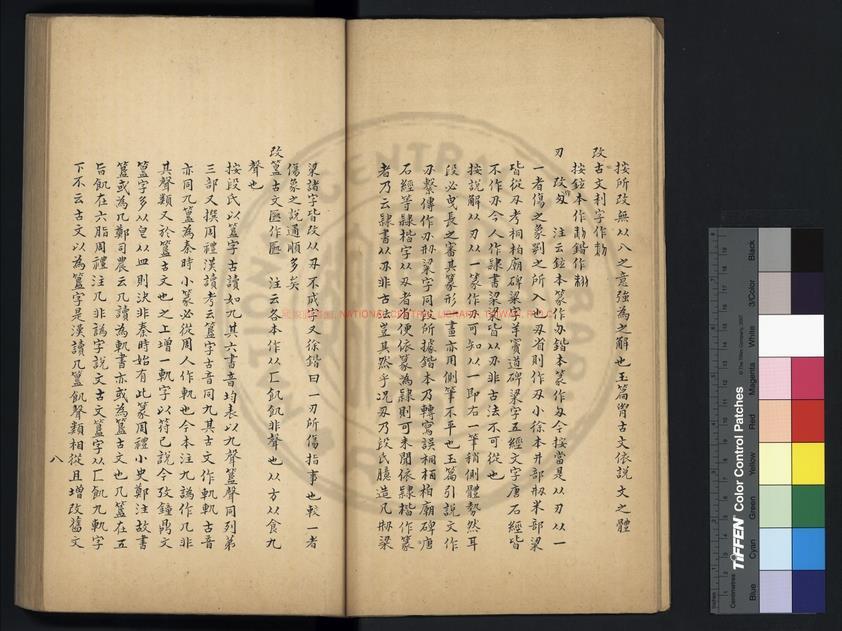 按所改無从八之意強為之解也玉篇凿古文依說文之體
改古文利字作𥝤
按鉉本作𥝤鍇作𥝤
刃 改㓝 注云鉉本篆作办鍇本篆作刅今按當是从刃从一
一者傷之象劉之所入也刅省則作刃小徐本井部㓝米部梁
皆從刅考桐柏廟碑梁字羊竇道碑梁字五經文字唐石經皆
不作刅今人作隸書梁梁皆以刅非古法不可從也
按說解从刃从一篆作刅可知以一即右一筆稍側體勢然耳
段必曳長之審其篆形一畫亦用側筆不平也玉篇引說文作
刅繫傳作刅㓝梁字同段所據鍇本乃轉寫誤桐柏廟碑唐
石經等隸楷字从刅者便依篆為隸則可未聞依隸楷作篆
者乃云隸書以刅非古法豈其然乎况刅乃段氏臆造凡㓝梁
梁諸字皆改从刅不成字又徐鍇曰一刃所傷指事也較一者
傷象之說通順多矣
改簋古文匭作匭 注云各本作从匚飢飢非聲也从方从食九
聲也
按段氏以簋字古讀如九其六書音均表以九聲簋聲同列第
三部又撰周禮漢讀考云簋字古音同九其古文作軌軌古音
亦同九簋為秦時小篆必從周人作軌也今本注九譌作几非
其聲類又於簋古文也之上增一軌字以符已說今攷鐘鼎文
簋字多从皀从皿則決非秦時始有此篆周禮小史鄭注故書
簋或為几鄭司農云几讀為軌書亦或為簋古文也几簋在五
旨飢在六脂周禮注几非譌字說文古文簋字从匚飢九軌字
下不云古文以為簋字是漢讀几簋飢聲類相從且增改舊文
八
NATIONAL CENTRAL LIBRARY, TAIWAN, R.O.C.
TIFFEN Color Control Patches
© The Tiffen Company, 2007
Centimetres
Blue
Cyan
Green
Yellow
Red
Magenta
White
3/Color
Black